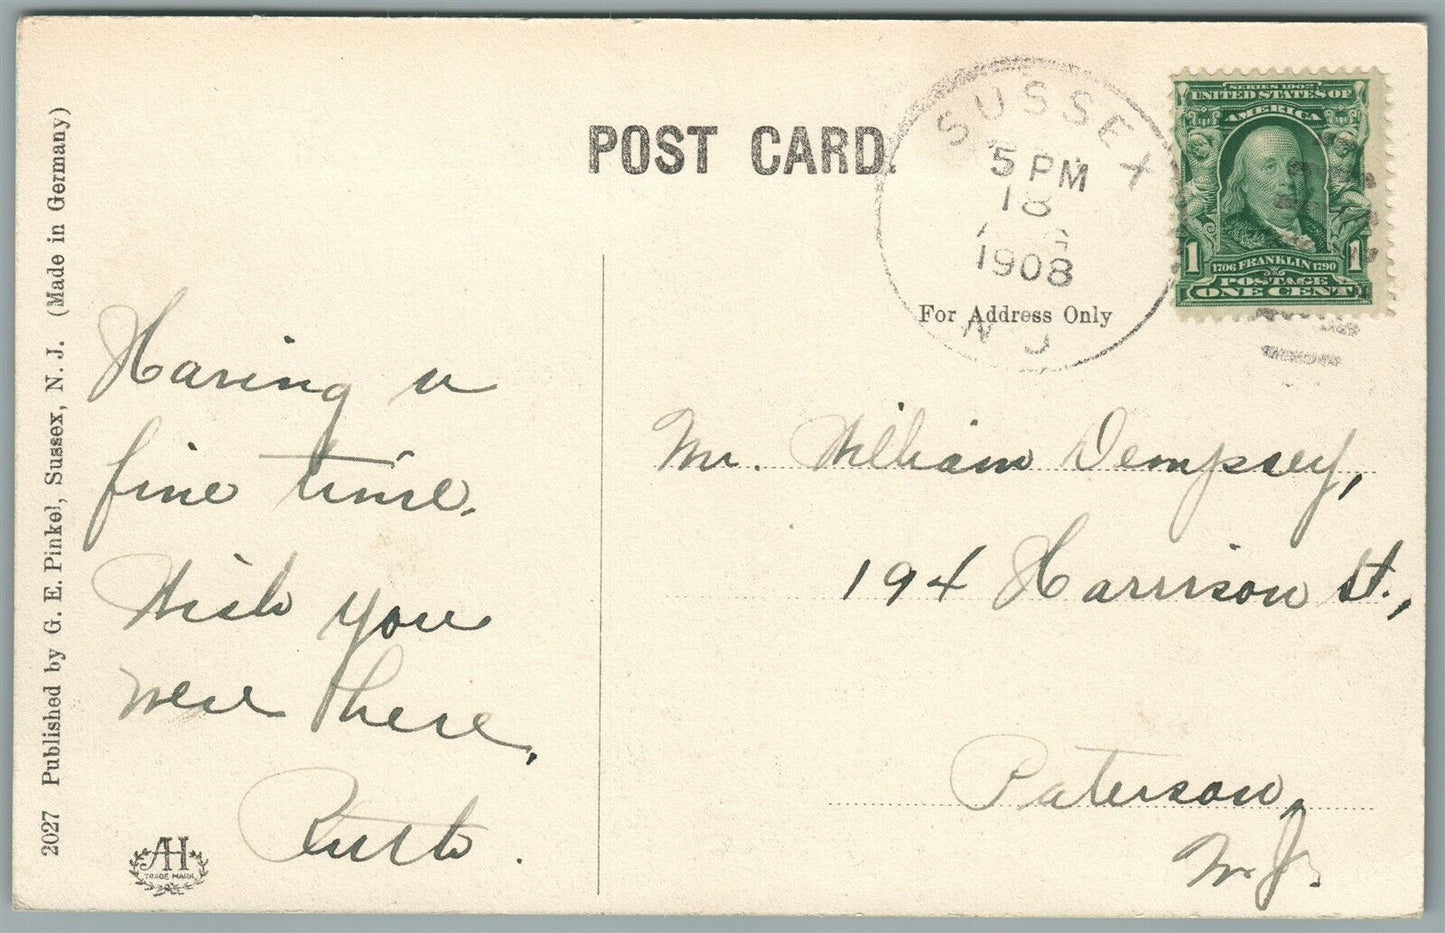 POST CARD.
SUSSEX
5 PM
18
1908
N J
SERIES 1902
UNITED STATES OF
AMERICA
1 1
1706 FRANKLIN 1790
POSTAGE
ONE CENT
For Address Only
Having a
fine time.
Wish you
were here,
Ruth.
Mr. William Dempsey,
194 Harrison St.,
Paterson,
N. J.
2027 Published by G. E. Pinkel, Sussex, N. J. (Made in Germany)
AH
TRADE MARK